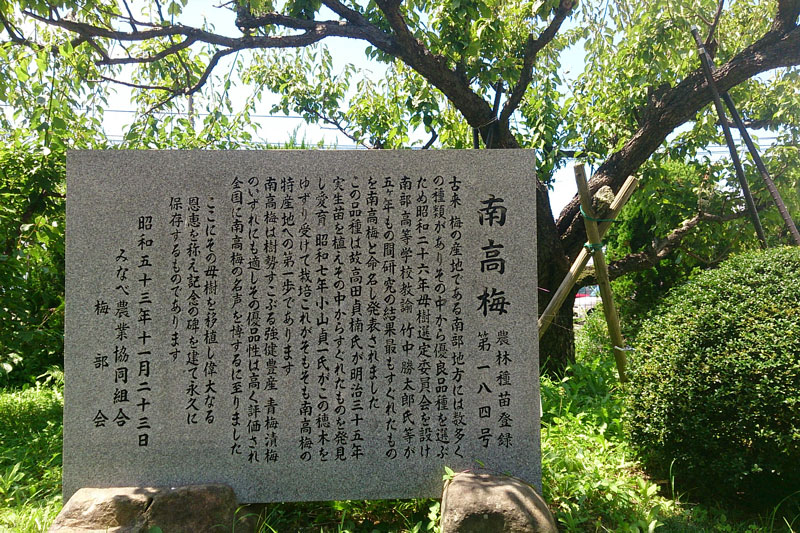 南高梅
農林種苗登録
第一八四号
古来梅の産地である南部地方には数多く
の種類がありその中から優良品種を選ぶ
ため昭和二十六年母樹選定委員会を設け
南部高等学校教諭竹中勝太郎氏等が
五ヶ年もの間研究の結果最もすぐれたもの
を南高梅と命名し発表されました
この品種は故高田貞楠氏が明治三十五年
実生苗を植えその中からすぐれたものを発見
し愛育 昭和七年小山貞一氏がこの穂木を
ゆずり受けて栽培これがそもそも南高梅の
特産地への第一歩であります
南高梅は樹勢すこぶる強健豊産 青梅漬梅
のいずれにも適しその優品性は高く評価され
全国に南高梅の名声を博するに至りました
ここにその母樹を移植し偉大なる
恩恵を称え記念の碑を建て永久に
保存するものであります
昭和五十三年十一月二十三日
みなべ農業協同組合
梅部会